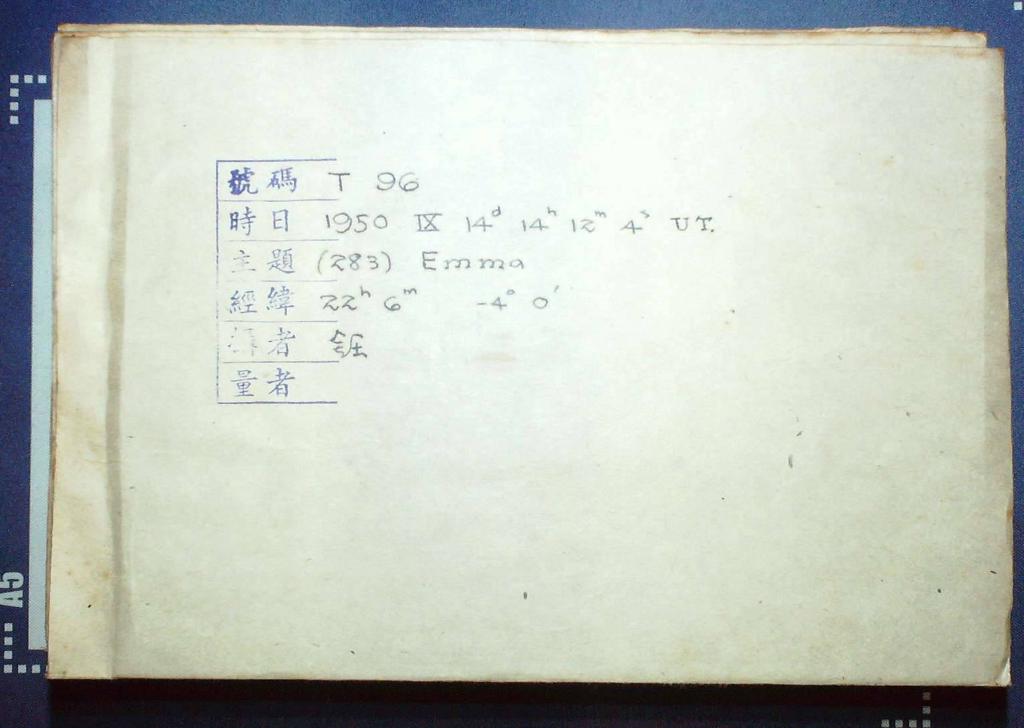 號碼 T 96
時日 1950 IX 14d 14h 12m 4s UT.
主題 (283) Emma
經緯 22h 6m -4° 0'
者
量者
A5